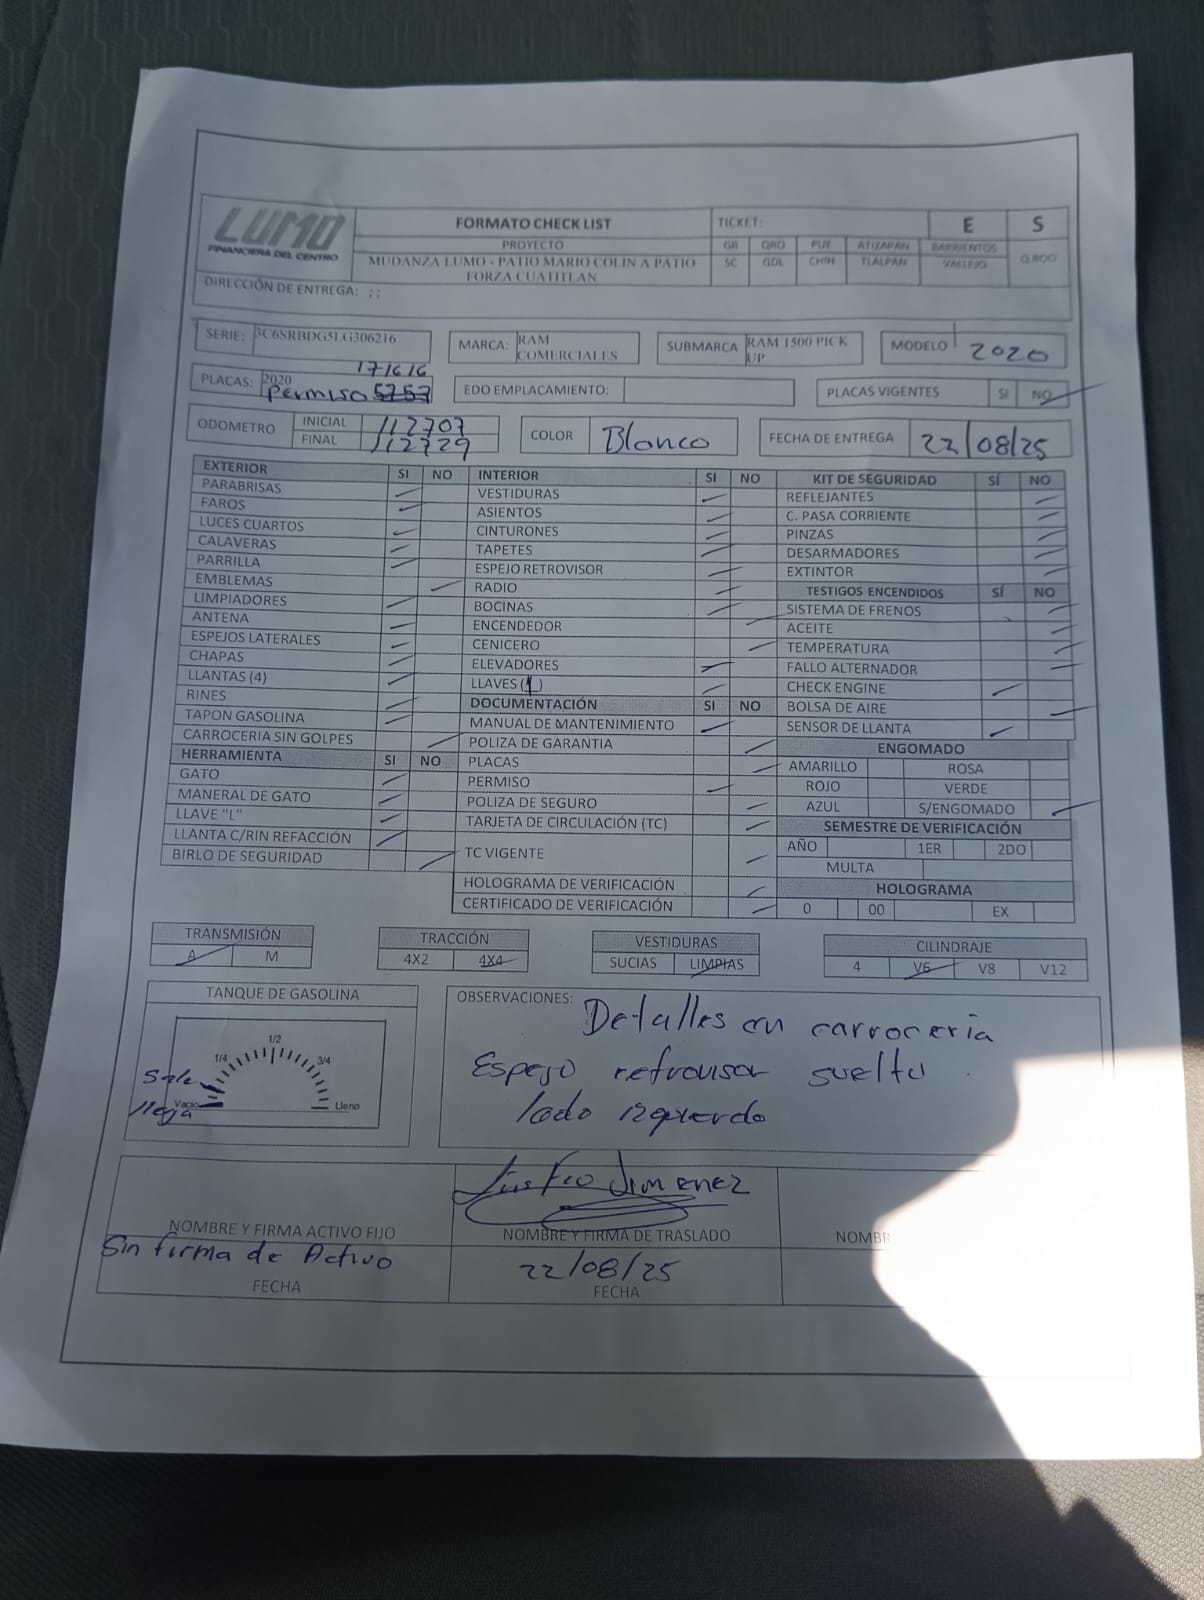 LUMO
FINANCIERA DEL CENTRO
FORMATO CHECK LIST
PROYECTO
MUDANZA LUMO - PATIO MARIO COLIN A PATIO
FORZA CUATITLAN
TICKET:
E S
GB QRO PUE ATIZAPAN BARRIENTOS
SC GDL CHIH TLALPAN VALLEJO
Q.ROO
DIRECCIÓN DE ENTREGA: ; ;
SERIE: 3C6SRBDG5LG306216
MARCA: RAM
COMERCIALES
SUBMARCA RAM 1500 PICK
UP
MODELO 2020
171616
PLACAS: 2020
Permiso 5757
EDO EMPLACAMIENTO:
PLACAS VIGENTES SI NO
ODOMETRO INICIAL 112707
FINAL 112729
COLOR Blanco
FECHA DE ENTREGA 22/08/25
EXTERIOR SI NO
PARABRISAS
FAROS
LUCES CUARTOS
CALAVERAS
PARRILLA
EMBLEMAS
LIMPIADORES
ANTENA
ESPEJOS LATERALES
CHAPAS
LLANTAS (4)
RINES
TAPON GASOLINA
CARROCERIA SIN GOLPES
HERRAMIENTA SI NO
GATO
MANERAL DE GATO
LLAVE "L"
LLANTA C/RIN REFACCIÓN
BIRLO DE SEGURIDAD
INTERIOR SI NO
VESTIDURAS
ASIENTOS
CINTURONES
TAPETES
ESPEJO RETROVISOR
RADIO
BOCINAS
ENCENDEDOR
CENICERO
ELEVADORES
LLAVES (1)
DOCUMENTACIÓN SI NO
MANUAL DE MANTENIMIENTO
POLIZA DE GARANTIA
PLACAS
PERMISO
POLIZA DE SEGURO
TARJETA DE CIRCULACIÓN (TC)
TC VIGENTE
HOLOGRAMA DE VERIFICACIÓN
CERTIFICADO DE VERIFICACIÓN
KIT DE SEGURIDAD SÍ NO
REFLEJANTES
C. PASA CORRIENTE
PINZAS
DESARMADORES
EXTINTOR
TESTIGOS ENCENDIDOS SÍ NO
SISTEMA DE FRENOS
ACEITE
TEMPERATURA
FALLO ALTERNADOR
CHECK ENGINE
BOLSA DE AIRE
SENSOR DE LLANTA
ENGOMADO
AMARILLO ROSA
ROJO VERDE
AZUL S/ENGOMADO
SEMESTRE DE VERIFICACIÓN
AÑO 1ER 2DO
MULTA
HOLOGRAMA
0 00 EX
TRANSMISIÓN
A M
TRACCIÓN
4X2 4X4
VESTIDURAS
SUCIAS LIMPIAS
CILINDRAJE
4 V6 V8 V12
TANQUE DE GASOLINA
1/2
1/4 3/4
Sale
Vacio Lleno
llega
OBSERVACIONES: Detalles en carroceria
Espejo retrovisor suelto
lado izquerdo
Jimenez
NOMBRE Y FIRMA ACTIVO FIJO
Sin firma de Activo
FECHA
NOMBRE Y FIRMA DE TRASLADO
22/08/25
FECHA
NOMBR